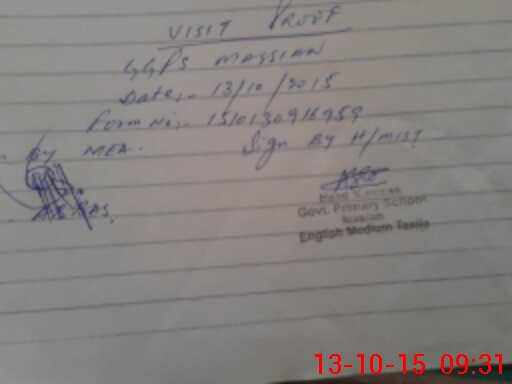 VISIT PROOF
GGPS MASSIAN
Date:- 13/10/2015
Form No:- 1510130916959
By MEA.
Sign BY H/MIST
Head
Govt. Primary School
Masian
English Medium Taxila
13-10-15 09:31